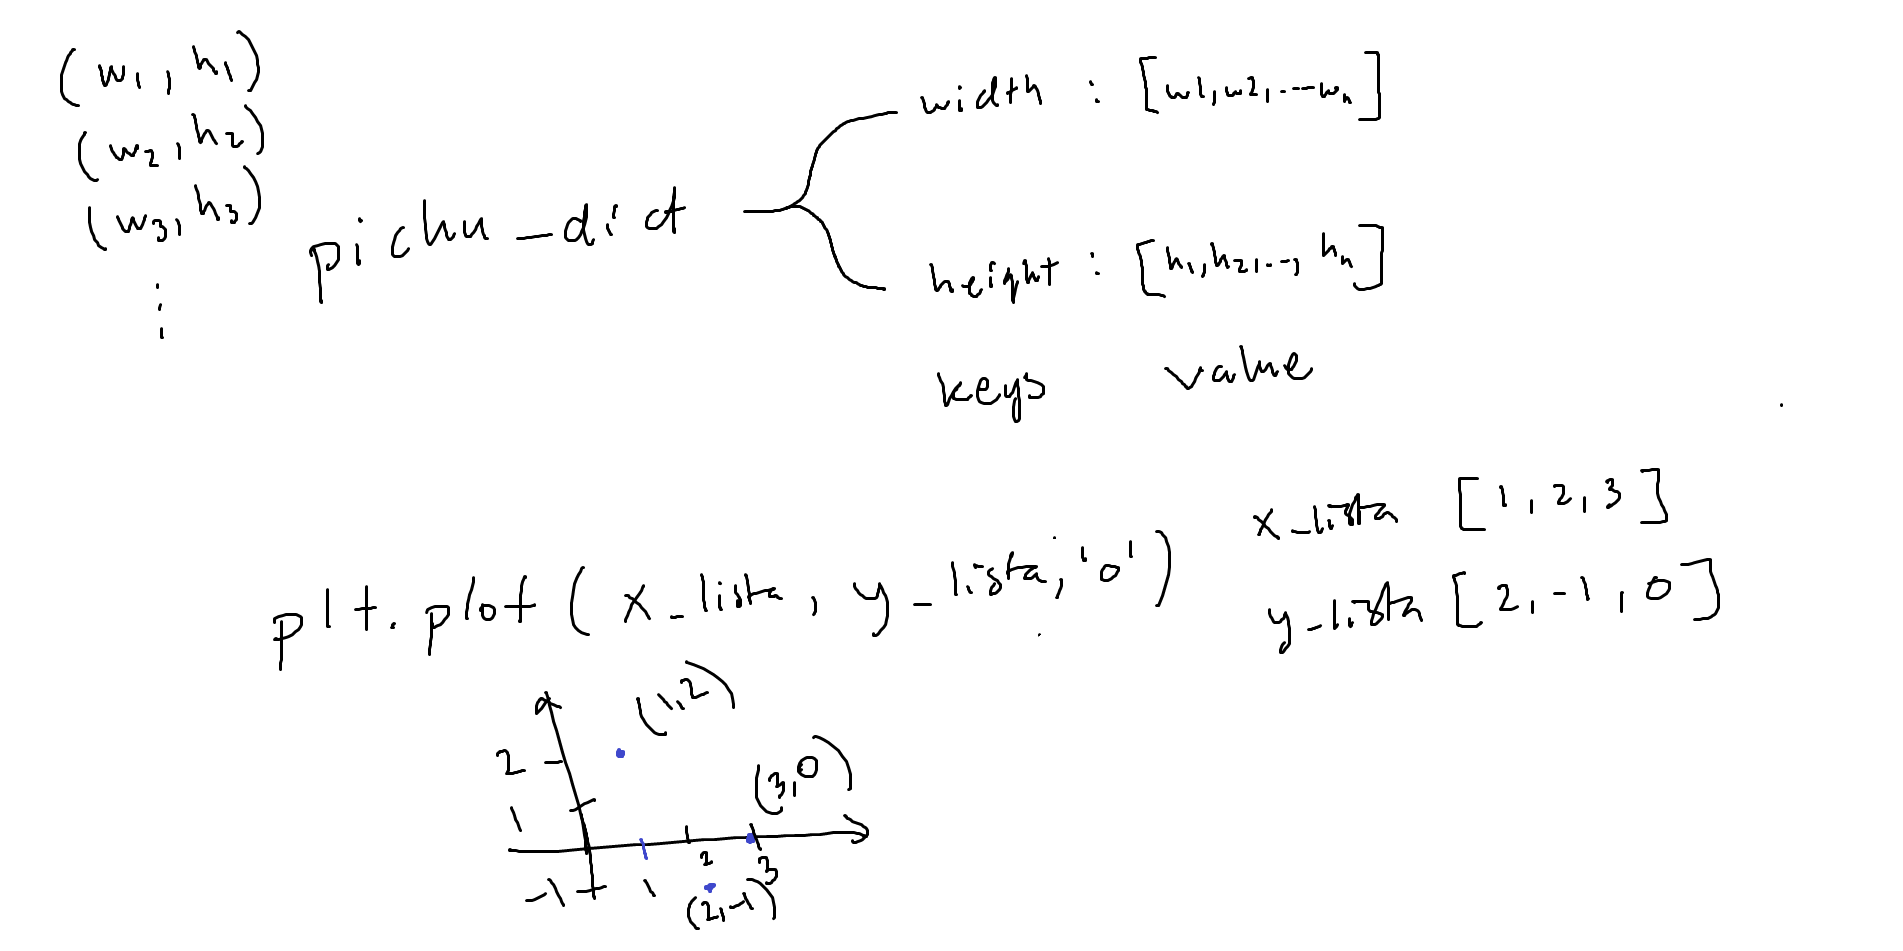 (w1, h1)
(w2, h2)
(w3, h3)
⋮
pichu_dict
width : [w1, w2, ... wn]
height : [h1, h2, .., hn]
keys value
plt.plot(x_lista, y_lista, 'o')
x_lista [1, 2, 3]
y_lista [2, -1, 0]
(1,2)
2
(3,0)
1
2
3
-1
1
(2,-1)